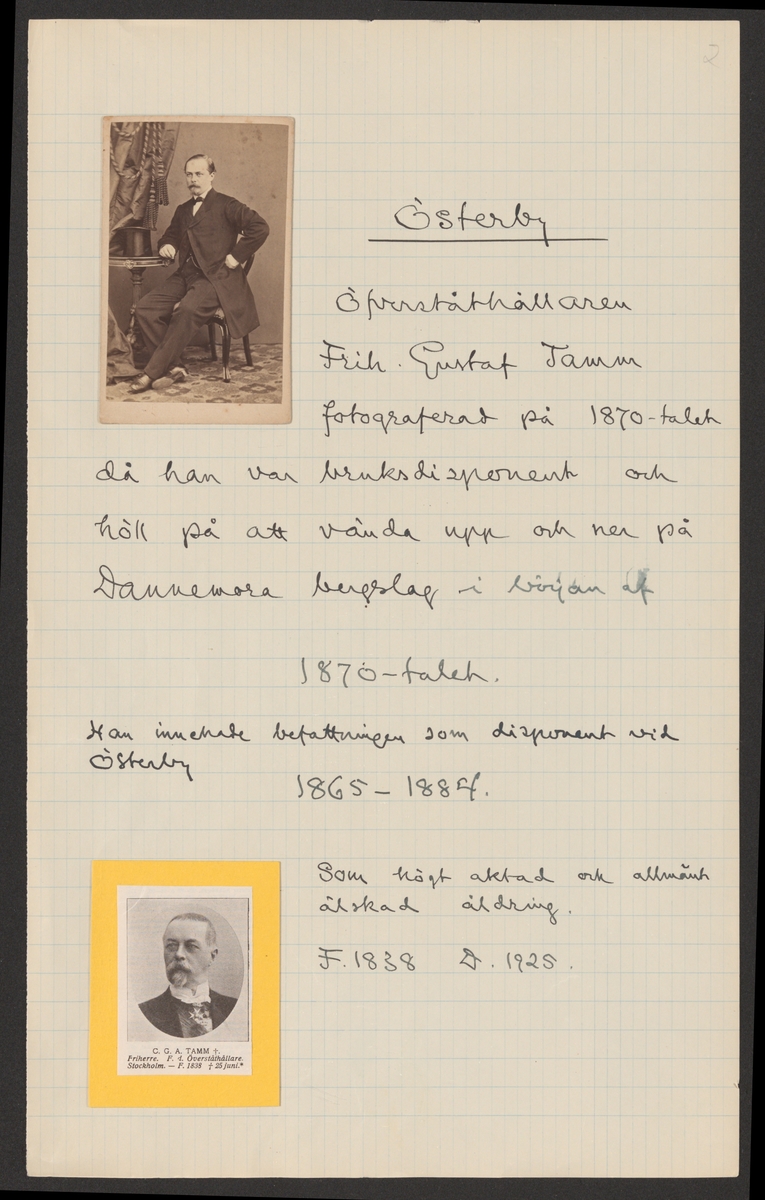 2
Österby
Öfverståthållaren
Frih. Gustaf Tamm
fotograferad på 1870-talet
då han var bruksdisponent och
höll på att vända upp och ner på
Dannemora bergslag i början af
1870-talet.
Han innehade befattningen som disponent vid
Österby
1865-1884.
Som högt aktad och allmänt
älskad åldring.
F. 1838 D. 1925.
C. G. A. TAMM †.
Friherre. F. d. Överståthållare.
Stockholm. — F. 1838 † 25 juni.*